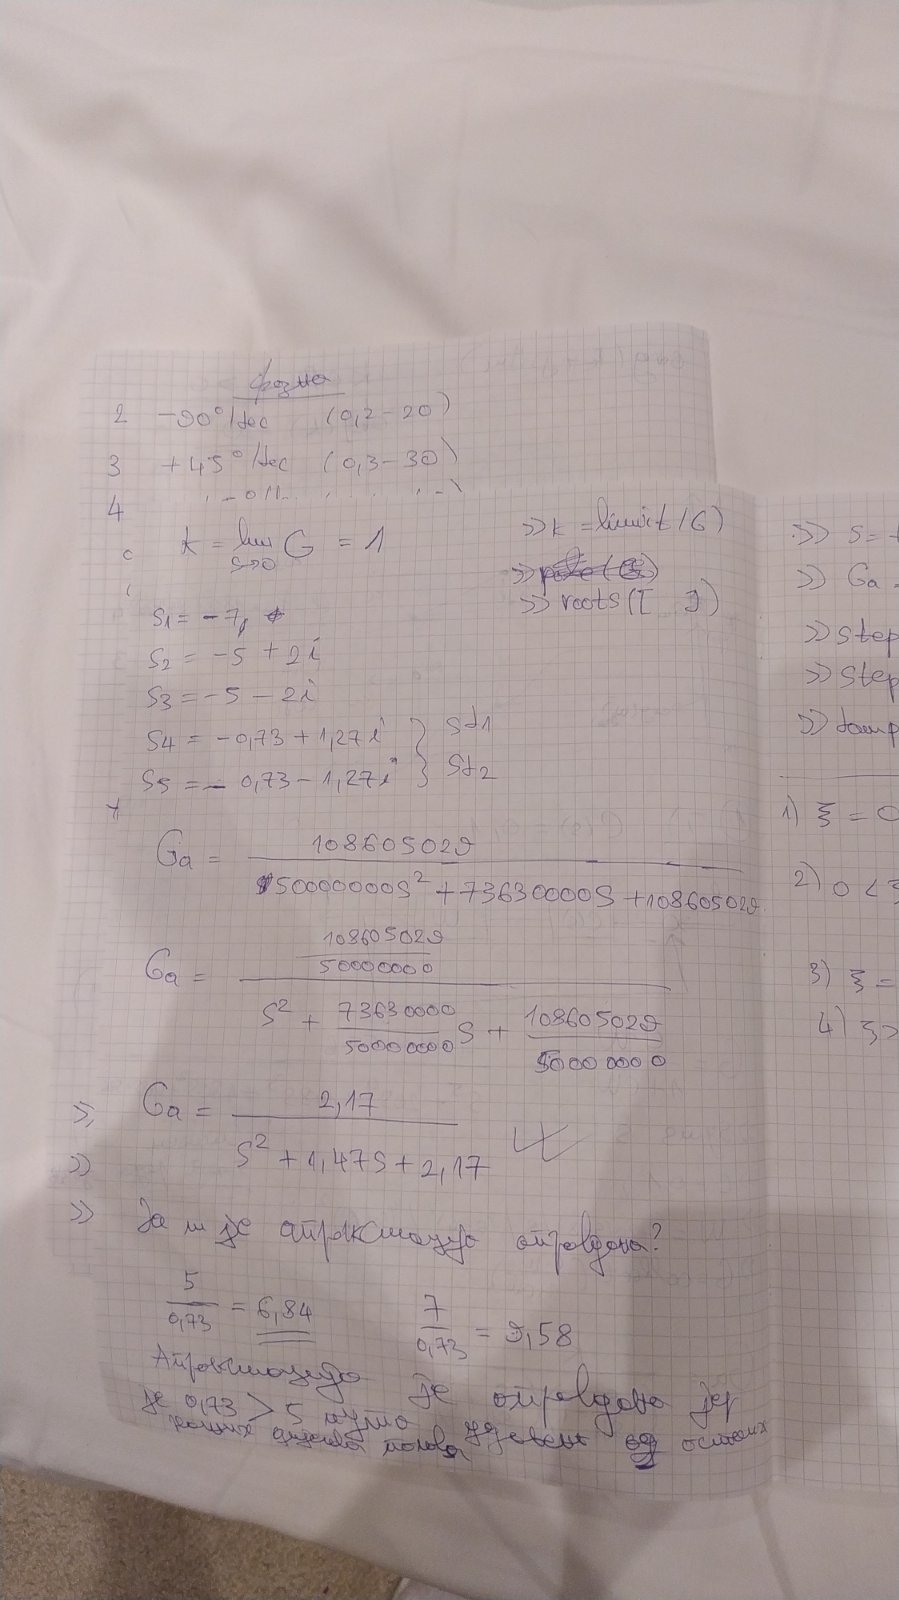 фазна
2 -90°/dec (0,2-20)
3 +45°/dec (0,3-30)
4 -0||-
k = lim G = 1
s→0
>> k = limit(G)
>> roots([ ])
S1 = -7,
S2 = -5 + 2i
S3 = -5 - 2i
S4 = -0,73 + 1,27i } Sd1
S5 = -0,73 - 1,27i } Sd2
Ga = 108605029 / 50000000S² + 73630000S + 108605029
Ga = 108605029/50000000 / S² + 73630000/50000000 S + 108605029/50000000
>> Ga = 2,17 / S² + 1,47S + 2,17
>>
>> Да ли је апроксимација оправдана?
5/0,73 = 6,84
7/0,73 = 9,58
Апроксимација је оправдана јер
је 0,73 > 5 пута удаљено од осталих
полова
>> S =
>> Ga
>> step
>> step
>> damp
1) ξ = 0
2) 0 <
3) ξ =
4) ξ >